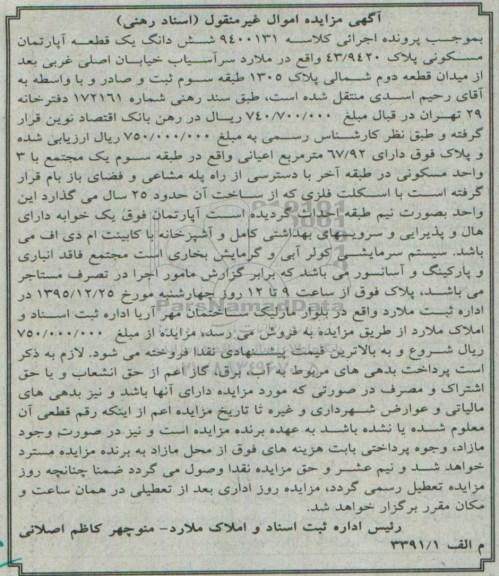 آگهی مزایده اموال غیرمنقول (اسناد رهنی)
بموجب پرونده اجرائی کلاسه ۹۴۰۰۱۳۱ شش دانگ یک قطعه آپارتمان
مسکونی پلاک ۴۳/۹۴۲۰ واقع در ملارد سرآسیاب خیابان اصلی غربی بعد
از میدان قطعه دوم شمالی پلاک ۱۳۰۵ طبقه سوم ثبت و صادر و با واسطه به
آقای رحیم اسدی منتقل شده است، طبق سند رهنی شماره ۱۷۲۱۶۱ دفترخانه
۲۹ تهران در قبال مبلغ ۷۴۰/۷۰۰/۰۰۰ ریال در رهن بانک اقتصاد نوین قرار
گرفته و طبق نظر کارشناس رسمی به مبلغ ۷۵۰/۰۰۰/۰۰۰ ریال ارزیابی شده
و پلاک فوق دارای ۶۷/۹۲ مترمربع اعیانی واقع در طبقه سوم یک مجتمع با ۳
واحد مسکونی در طبقه آخر با دسترسی از راه پله مشاعی و فضای باز بام قرار
گرفته است با اسکلت فلزی که از ساخت آن حدود ۲۵ سال می گذارد این
واحد بصورت نیم طبقه احداث گردیده است آپارتمان فوق یک خوابه دارای
هال و پذیرایی و سرویسهای بهداشتی کامل و آشپزخانه با کابینت ام دی اف می
باشد. سیستم سرمایشی کولر آبی و گرمایش بخاری است مجتمع فاقد انباری
و پارکینگ و آسانسور می باشد که برابر گزارش مامور اجرا در تصرف مستاجر
می باشد، پلاک فوق از ساعت ۹ تا ۱۲ روز چهارشنبه مورخ ۱۳۹۵/۱۲/۲۵ در
اداره ثبت ملارد واقع در بلوار مارلیک ساختمان مهر آریا اداره ثبت اسناد و
املاک ملارد از طریق مزایده به فروش می رسد، مزایده از مبلغ ۷۵۰/۰۰۰/۰۰۰
ریال شروع و به بالاترین قیمت پیشنهادی نقدا فروخته می شود. لازم به ذکر
است پرداخت بدهی های مربوط به آب، برق، گاز اعم از حق انشعاب و یا حق
اشتراک و مصرف در صورتی که مورد مزایده دارای آنها باشد و نیز بدهی های
مالیاتی و عوارض شهرداری و غیره تا تاریخ مزایده اعم از اینکه رقم قطعی آن
معلوم شده یا نشده باشد به عهده برنده مزایده است و نیز در صورت وجود
مازاد، وجوه پرداختی بابت هزینه های فوق از محل مازاد به برنده مزایده مسترد
خواهد شد و نیم عشر و حق مزایده نقدا وصول می گردد ضمنا چنانچه روز
مزایده تعطیل رسمی گردد، مزایده روز اداری بعد از تعطیلی در همان ساعت و
مکان مقرر برگزار خواهد شد.
رئیس اداره ثبت اسناد و املاک ملارد- منوچهر کاظم اصلانی
م الف ۳۳۹۱/۱
ParsNamadData